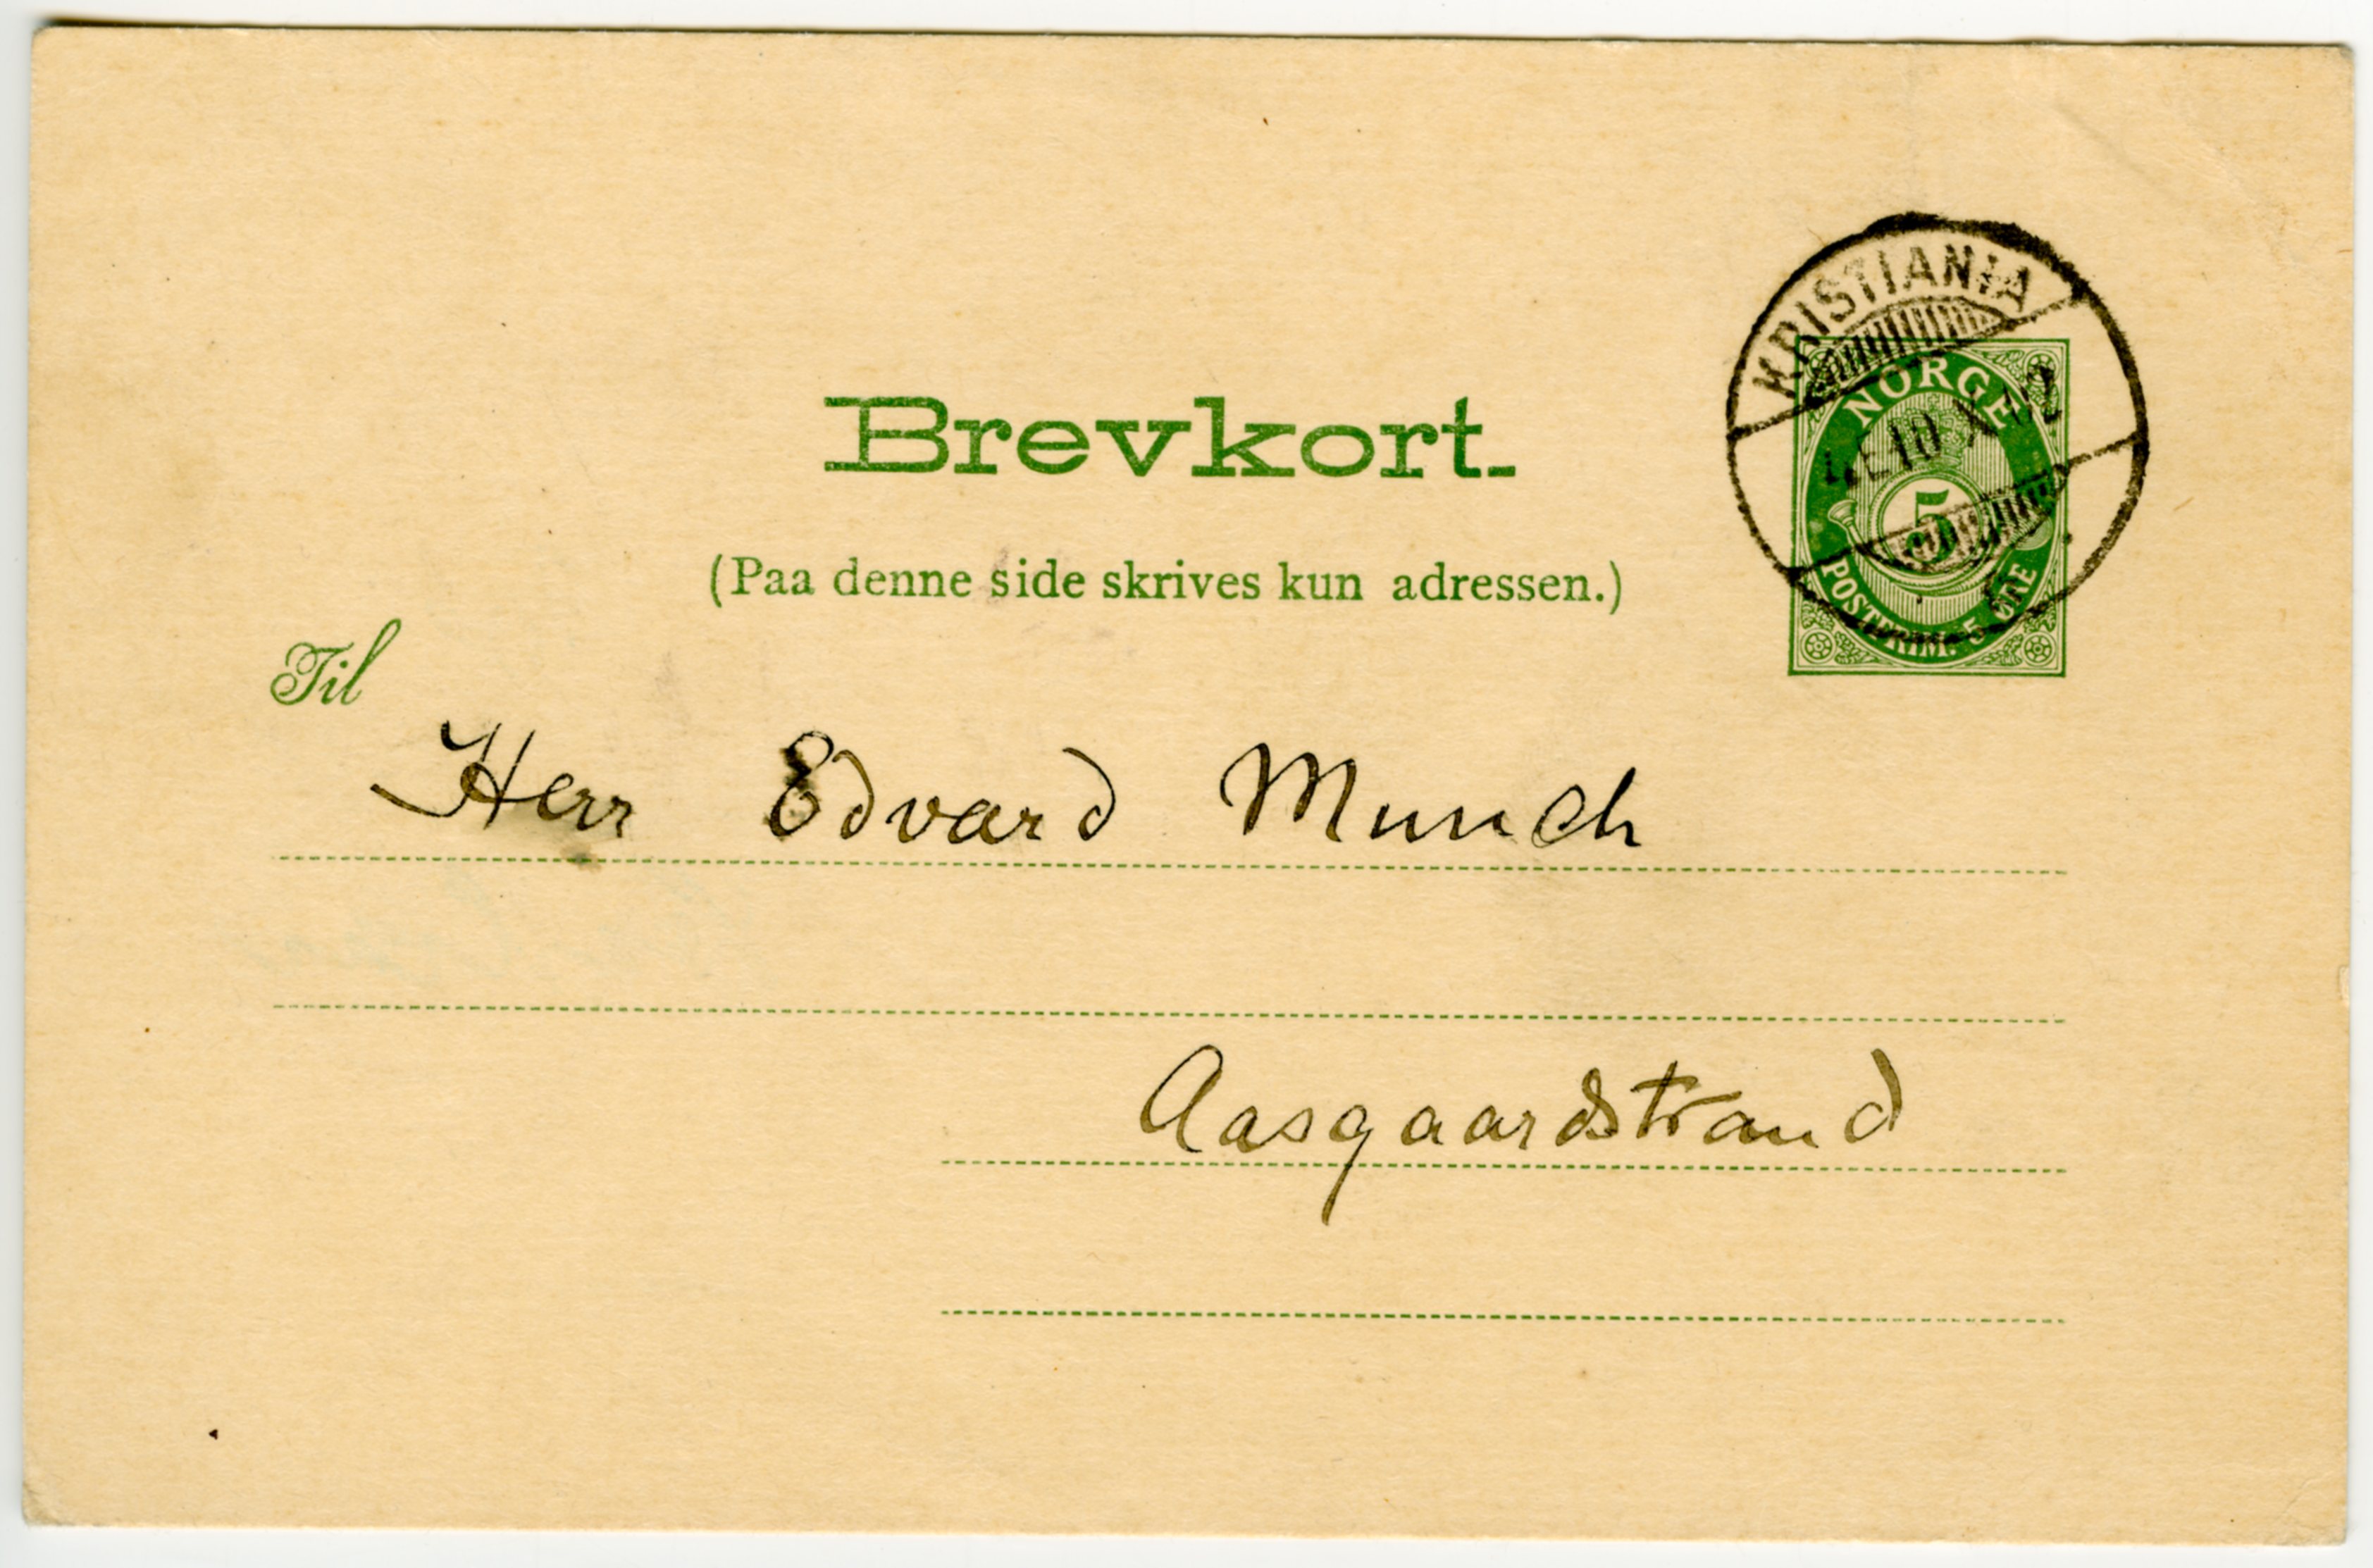 KRISTIANIA
NORGE
5
POSTFRIM. 5 ØRE
Brevkort.
(Paa denne side skrives kun adressen.)
Til
Herr Edvard Munch
Aasgaardstrand